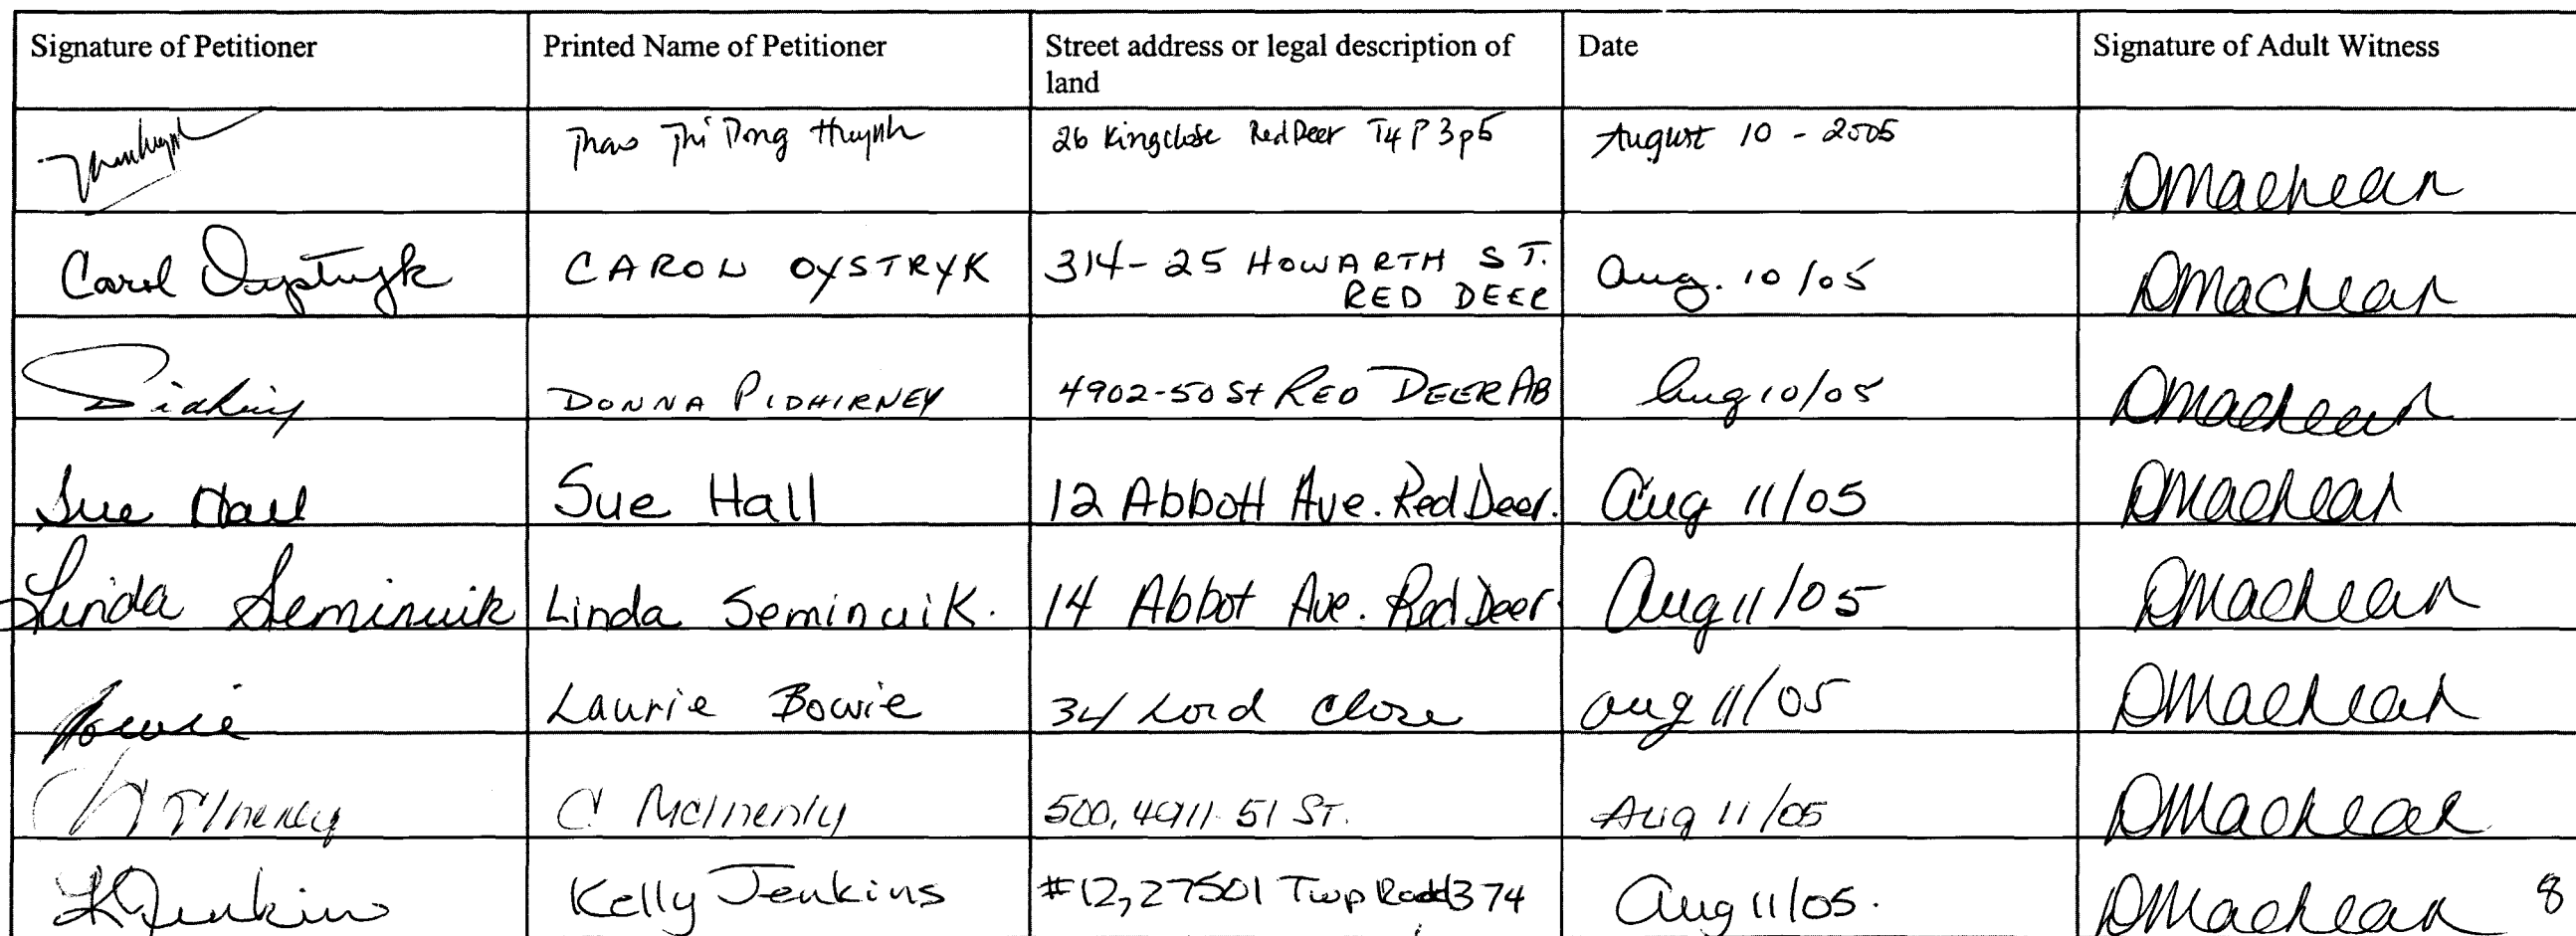 Signature of Petitioner Printed Name of Petitioner Street address or legal description of land Date Signature of Adult Witness
Thi Huynh 26 King close Red Deer T4P 3p5 August 10 - 2005
Carol Oystryk CAROL OYSTRYK 314-25 HOWARTH ST. RED DEER Aug. 10/05
DONNA PIDHIRNEY 4902-50 St RED DEER AB Aug 10/05
Sue Hall Sue Hall 12 Abbott Ave. Red Deer. Aug 11/05
Linda Seminuik Linda Seminuik. 14 Abbot Ave. Red Deer. Aug 11/05
Bowie Laurie Bowie 34 Lord Close Aug 11/05
C McInenly 500, 4911-51 ST. Aug 11/05
K Jenkins Kelly Jenkins #12, 27501 Twp Road 374 Aug 11/05. 8